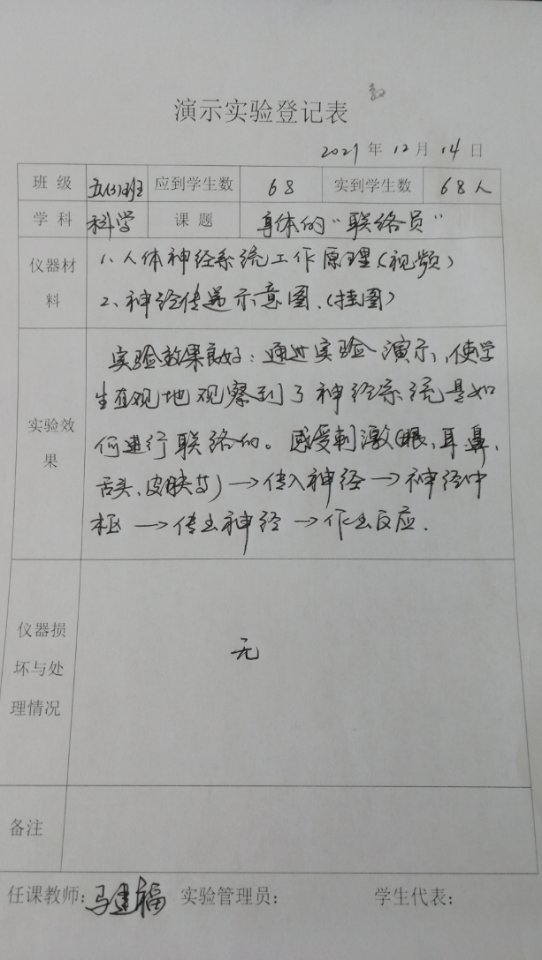 演示实验登记表
2021 年 12 月 14 日
班 级 五(3)班 应到学生数 68 实到学生数 68人
学 科 科学 课 题 身体的“联络员”
仪器材料 1、人体神经系统工作原理(视频)
2、神经传递示意图.(挂图)
实验效果 实验效果良好:通过实验演示,使学
生直观地观察到了神经系统是如
何进行联络的。感受刺激(眼、耳、鼻、
舌头、皮肤等)→传入神经→神经中
枢→传出神经→作出反应.
仪器损坏与处理情况 无
备注
任课教师:马建福 实验管理员: 学生代表: